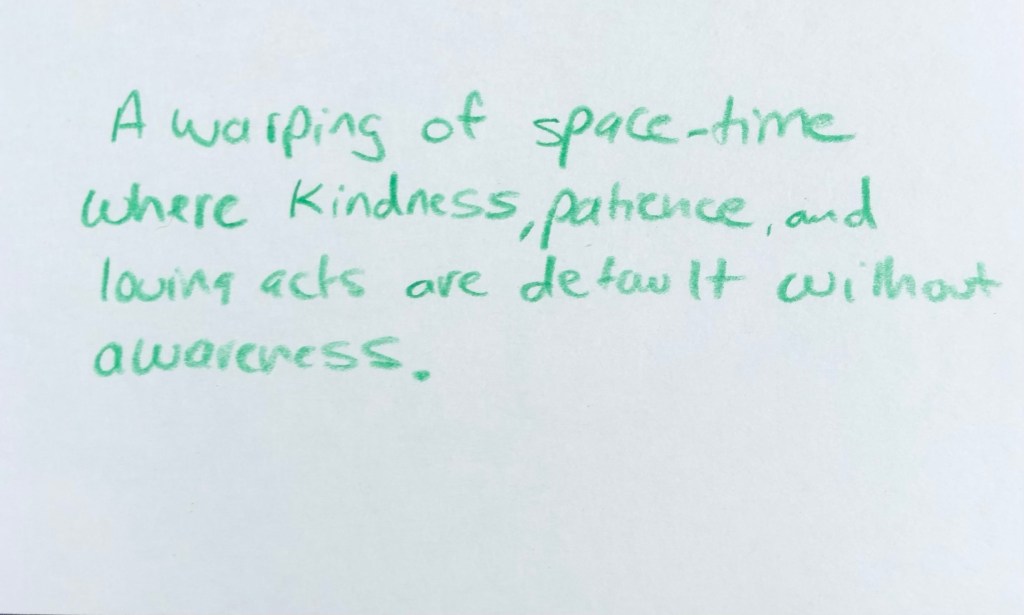 A warping of space-time
where kindness, patience, and
loving acts are default without
awareness.